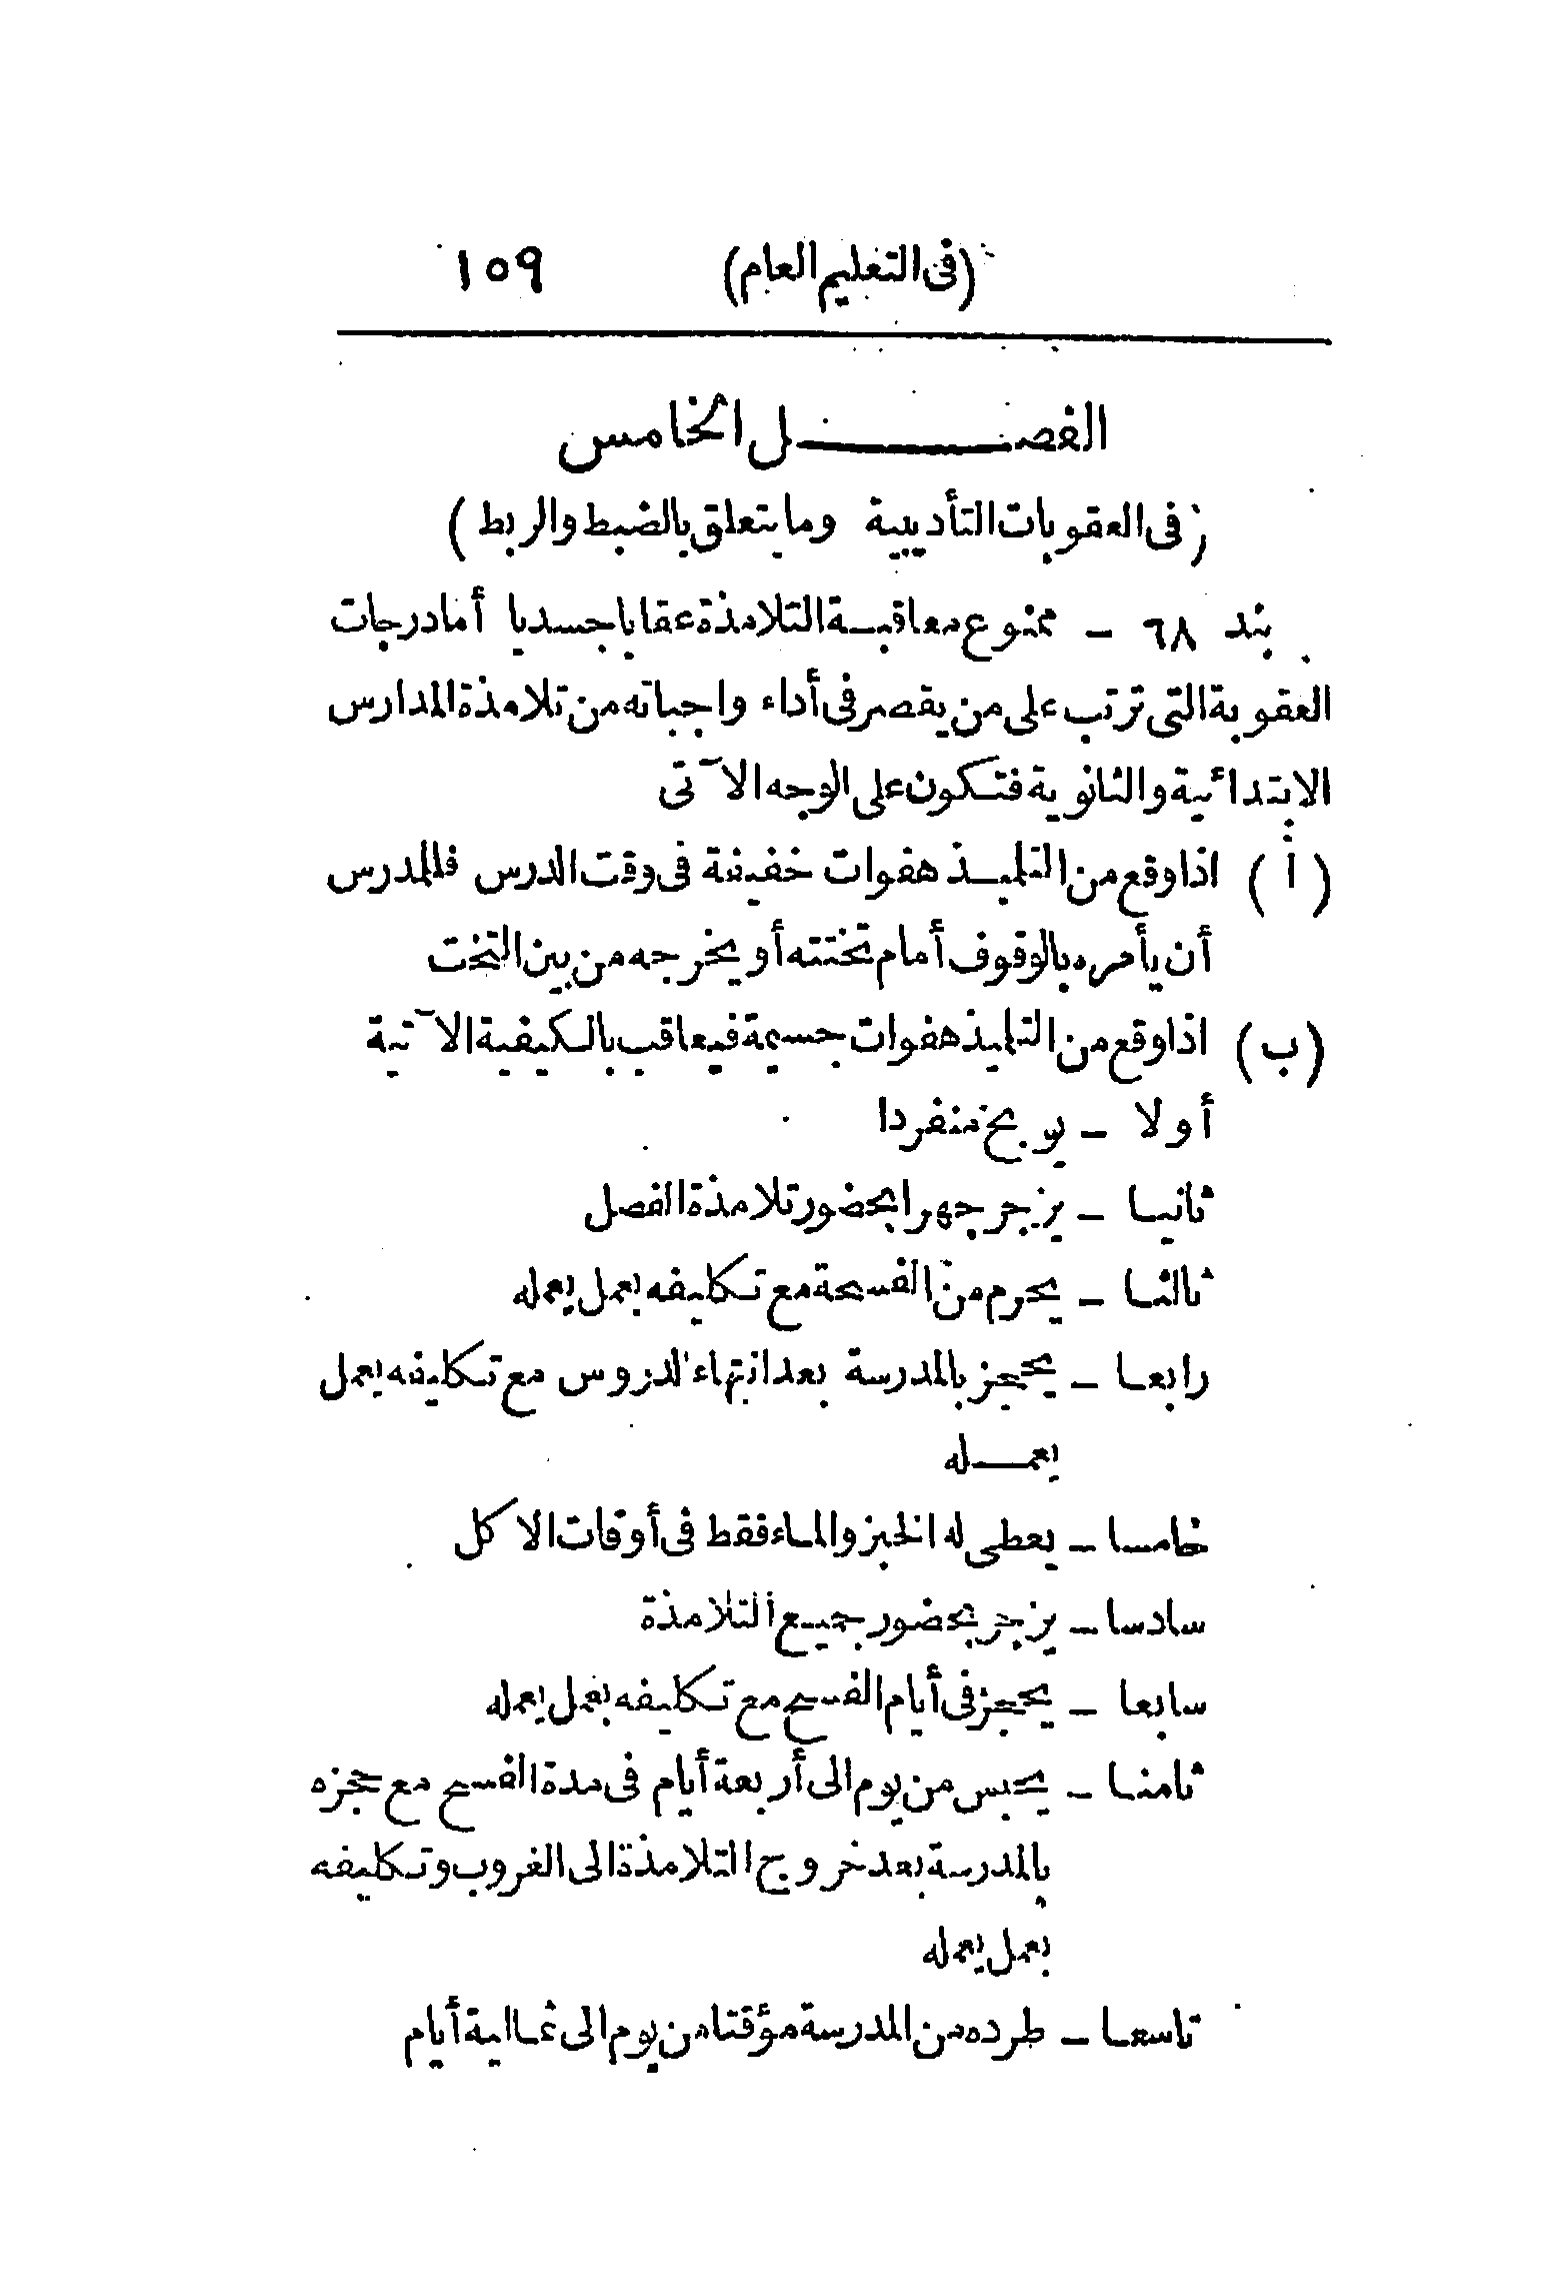 (فى التعليم العام) ١٥٩
الفصل الخامس
(فى العقوبات التأديبية وما يتعلق بالضبط والربط)
بند ٦٨ - ممنوع معاقبة التلامذة عقابا جسديا أما درجات
العقوبة التى ترتب على من يقصر فى أداء واجباته من تلامذة المدارس
الابتدائية والثانوية فتكون على الوجه الآتى
(أ) اذا وقع من التلميذ هفوات خفيفة فى وقت الدرس فللمدرس
أن يأمره بالوقوف أمام تختته أو يخرجه من بين التخت
(ب) اذا وقع من التلميذ هفوات جسيمة فيعاقب بالكيفية الآتية
أولا - يوبخ منفردا
ثانيا - يزجر جهرا بحضور تلامذة الفصل
ثالثا - يحرم من الفسحة مع تكليفه بعمل يعمله
رابعا - يحجز بالمدرسة بعد انتهاء الدروس مع تكليفه بعمل
يعمله
خامسا - يعطى له الخبز والماء فقط فى أوقات الاكل
سادسا - يزجر بحضور جميع التلامذة
سابعا - يحجز فى أيام الفسح مع تكليفه بعمل يعمله
ثامنا - يحبس من يوم الى أربعة أيام فى مدة الفسح مع حجزه
بالمدرسة بعد خروج التلامذة الى الغروب وتكليفه
بعمل يعمله
تاسعا - طرده من المدرسة مؤقتا من يوم الى ثمانية أيام